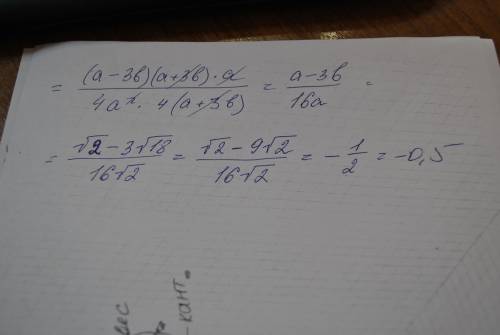 = (a-3b)(a+3b)·a / 4a²·4(a+3b) = a-3b / 16a =
= √2-3√18 / 16√2 = √2-9√2 / 16√2 = -1/2 = -0,5
вес
-кант.